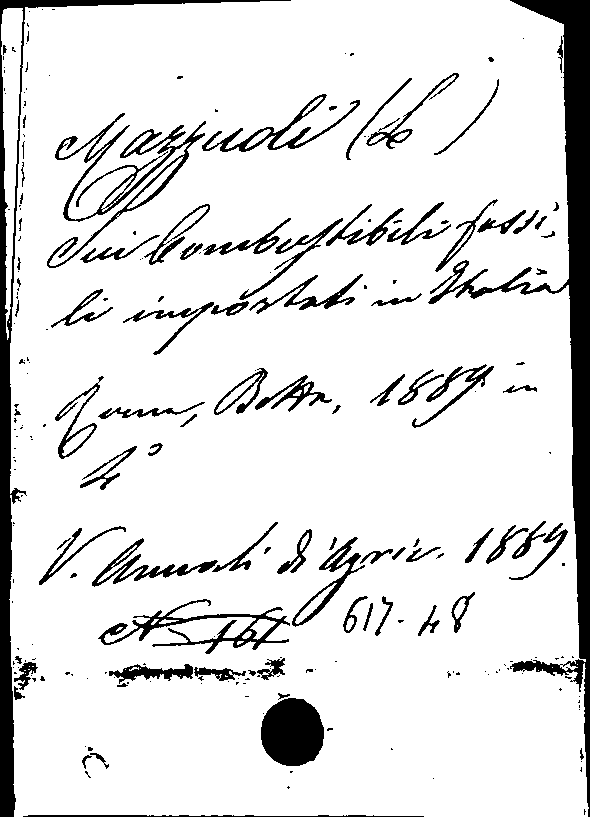 Mazzuoli (L)
Sui Combustibili fossi-
li importati in Italia
Roma, Botta, 1889. in
4°
V. Annali di Agric. 1889.
N 161 617-48